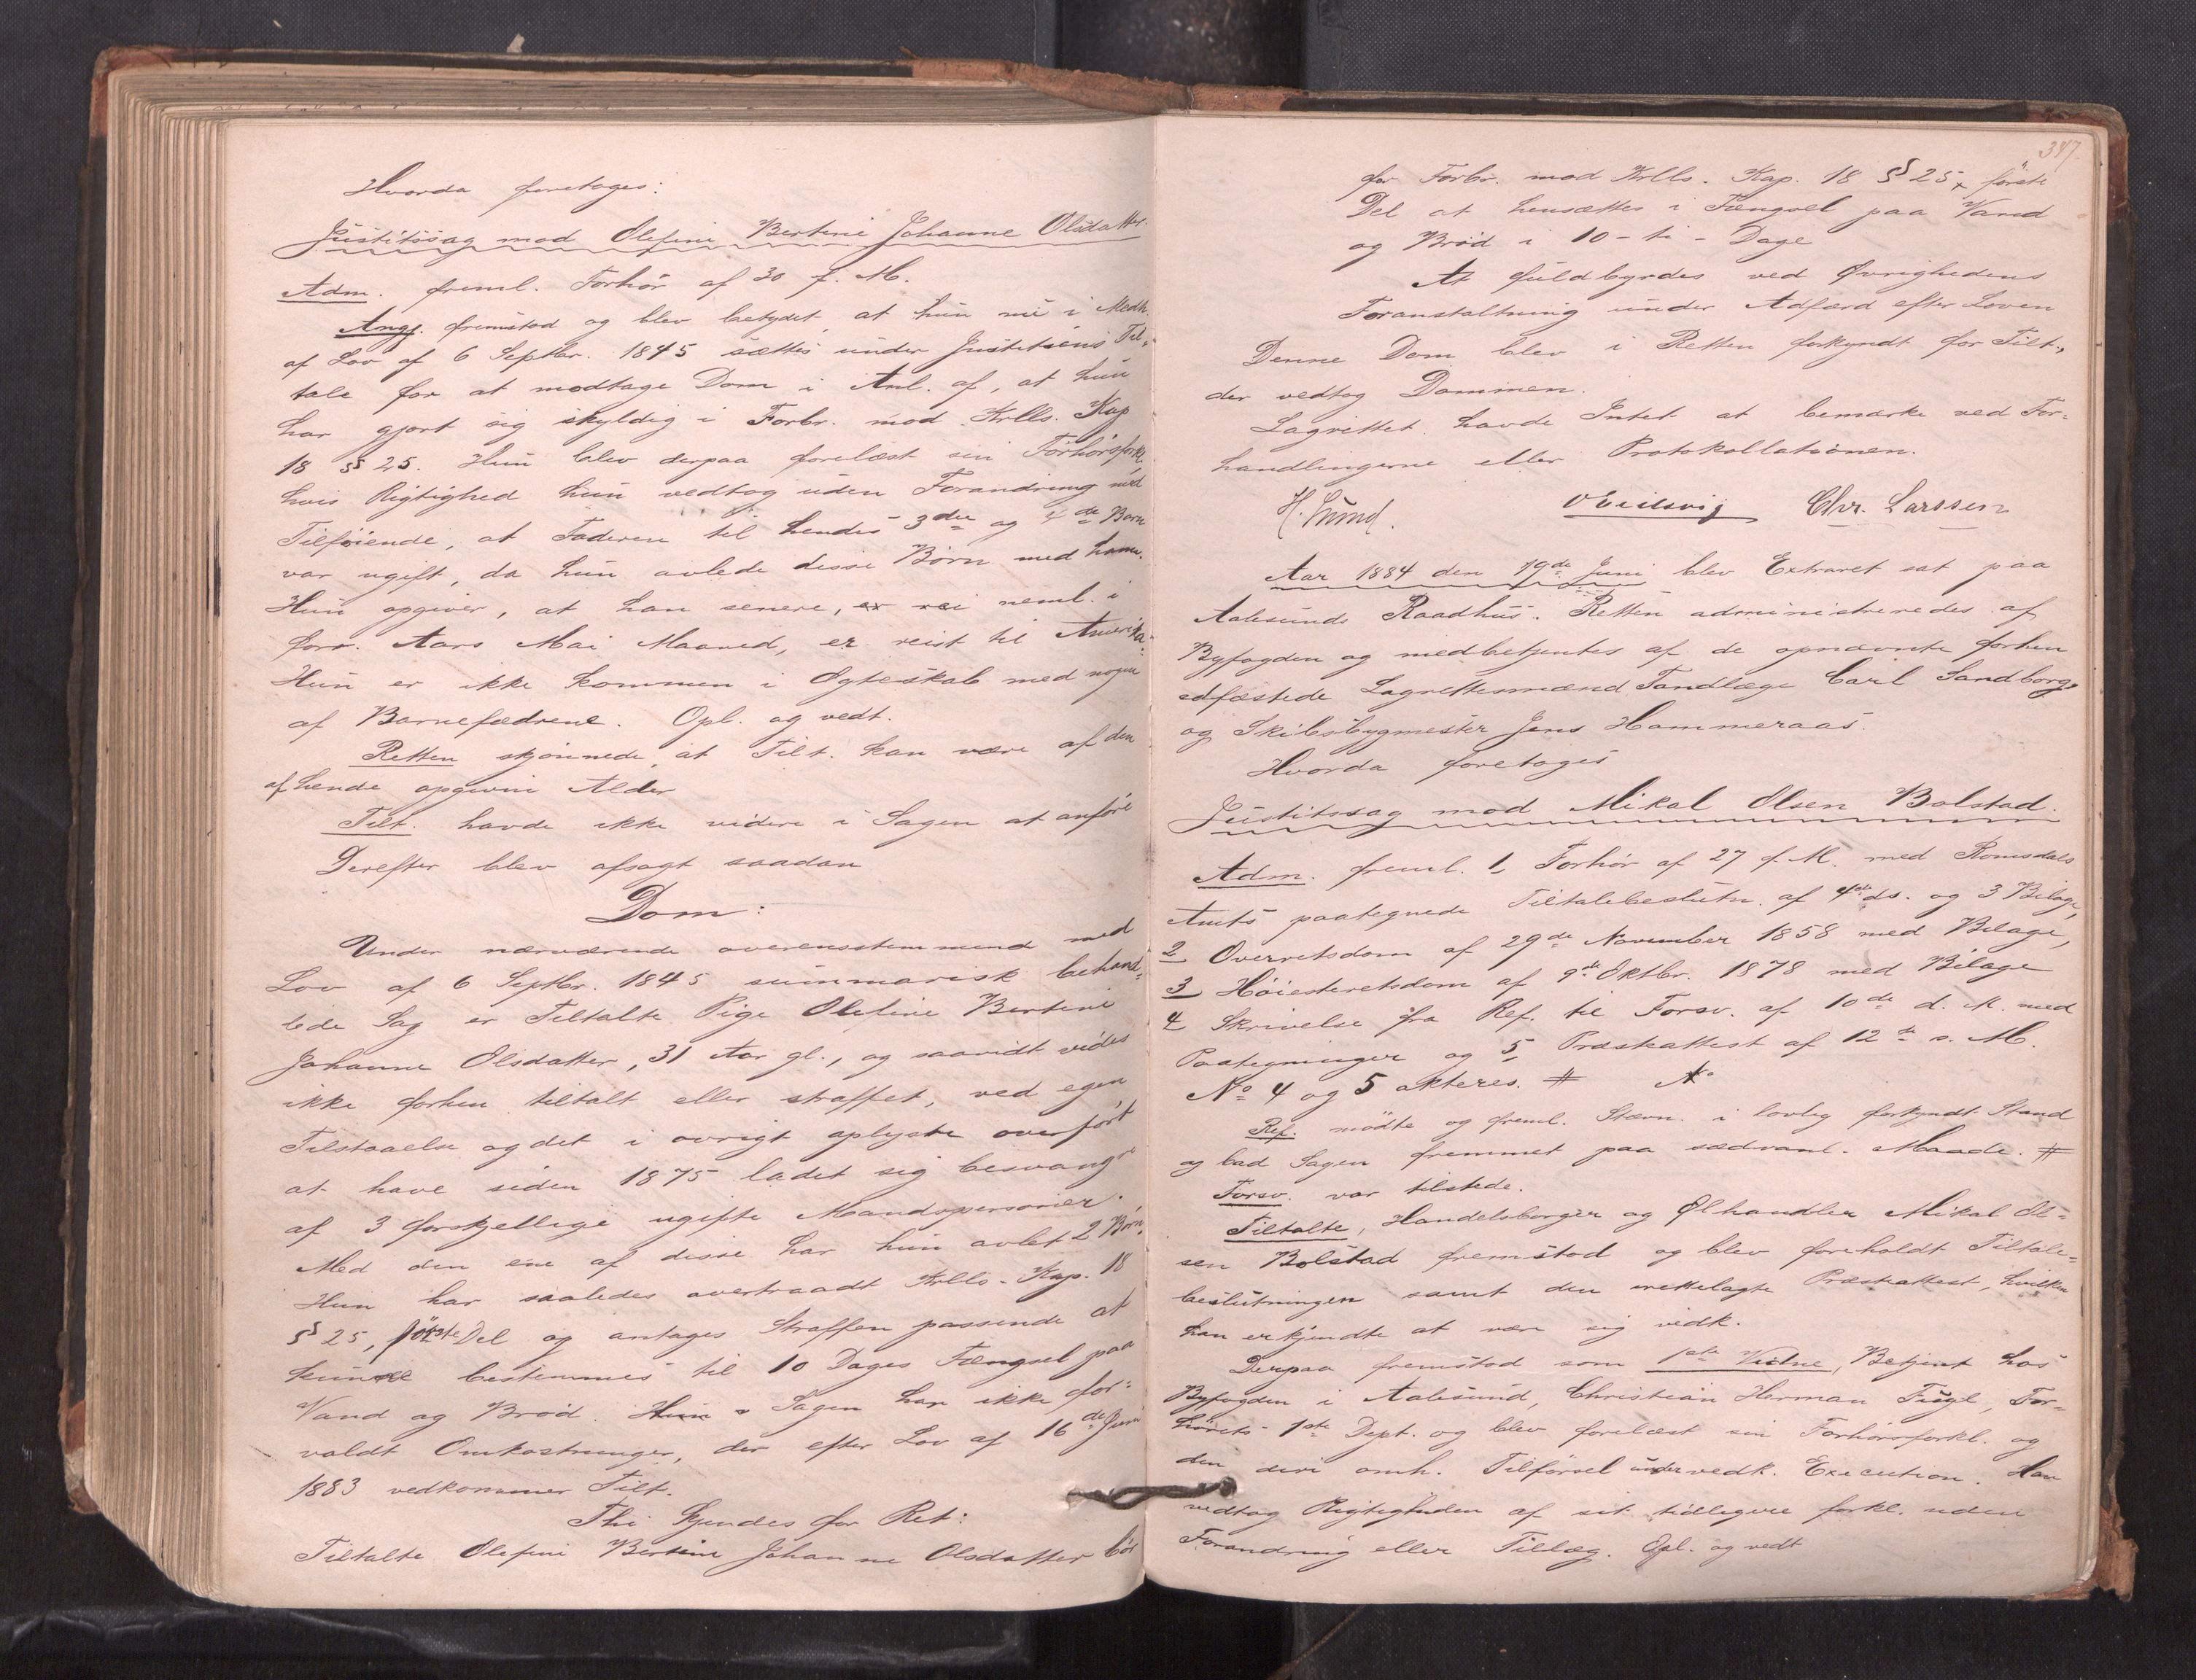 Hvorda foretages:
Justitssag mod Olefine Bertine Johanne Olsdatter.
Adm. freml. Forhör af 30 f. M.
Angj. fremstod og blev betydet, at hun nu i Medh.
af Lov af 6 Septbr. 1845 sættes under Justitiens Til-
tale for at modtage Dom i Anl. af, at hun
har gjort sig skyldig i Forbr. mod Krlls. Kap
18 § 25. Hun blev derpaa forelæst sin Forhörsforkl.
hvis Rigtighed hun vedtog uden Forandring med
Tilföiende, at Faderen til hendes 3die og 4de Barn
var ugift, da hun avlede disse Börn med ham.
Hun opgiver, at han senere, er rei neml. i
forr. Aars Mai Maaned, er reist til Amerika.
Hun er ikke kommen i Ægteskab med nogen
af Barnefædrene. Opl. og vedt.
Retten skjönnede, at Tilt. kan være af den
af hende opgivne Alder
Tilt. havde ikke videre i Sagen at anföre
Derefter blev afsagt saadan
Dom:
Under nærværende overensstemmend med
Lov af 6 Septbr. 1845 summarisk behand-
lede Sag er Tiltalte Pige Olefine Bertine
Johanne Olsdatter, 31 Aar gl., og saavidt vides
ikke forhen tiltalt eller straffet, ved egen
Tilstaaelse og det i övrigt oplyste overfört
at have siden 1875 ladet sig besvangre
af 3 forskjellige ugifte Mandspersoner.
Med den ene af disse har hun avlet 2 Börn.
Hun har saaledes overtraadt Krlls. Kap. 18
§ 25, förste Del og antages Straffen passende at
kunne bestemmes til 10 Dages Fængsel paa
Vand og Bröd. Hun Sagen har ikke for-
voldt Omkostninger, der efter Lov af 16de Juni
1883 vedkommer Tilt.
Thi kjendes for Ret:
Tiltalte Olefine Bertine Johanne Olsdatter bör
387.
for Forbr. mod Krlls. Kap. 18 § 25, förste
Del at hensættes i Fængsel paa Vand
og Bröd i 10 - ti - Dage
At fuldbyrdes ved Övrighedens
Foranstaltning under Adfærd efter Loven
Denne Dom blev i Retten forkyndt for Tilt.,
der vedtog Dommen.
Lagrettet havde Intet at bemærke ved For-
handlingerne eller Protokollationen.
H. Sund. O Eidsvig Chr. Larssen
Aar 1884 den 19de Juni blev Extraret sat paa
Aalesunds Raadhus. Retten administreredes af
Byfogden og medbetjentes af de opnævnte forhen
edfæstede Lagrettesmænd Tandlæge Carl Sandborg
og Skibsbygmester Jens Hammeraas.
Hvorda foretoges
Justitssag mod Mikal Olsen Bolstad.
Adm. freml. 1, Forhör af 27 f. M. med Romsdals
Amts paategnede Tiltalebeslutn. af 4de ds. og 3 Bilage,
2 Overretsdom af 29de November 1858 med Bilage,
3 Höiesteretsdom af 9de Oktbr. 1878 med Bilage
4 Skrivelse fra Ref. til Forsv. af 10de d. M. med
Paategninger og 5, Præsteattest af 12te s. M.
No 4 og 5 akteres. # No
Ref. mödte og freml. Stævn. i lovlig forkyndt Stand
og bad Sagen fremmet paa sædvanl. Maade. #
Forsv. var tilstede.
Tiltalte, Handelsborger og Ölhandler Mikal Ol-
sen Bolstad fremstod og blev foreholdt Tiltale-
beslutningen samt den irettelagte Præsteattest, hvilken
han erkjendte at være sig vedk.
Derpaa fremstod som 1ste Vidne, Betjent hos
Byfogden i Aalesund, Christian Herman Fugl, For-
hörets 1ste Dept. og blev forelæst sin Forhörsforkl. og
den deri omh. Tilförsel under vedk. Execution. Han
vedtog Rigtigheden af sit tidligere forkl. uden
Forandring eller Tillæg. Opl. og vedt